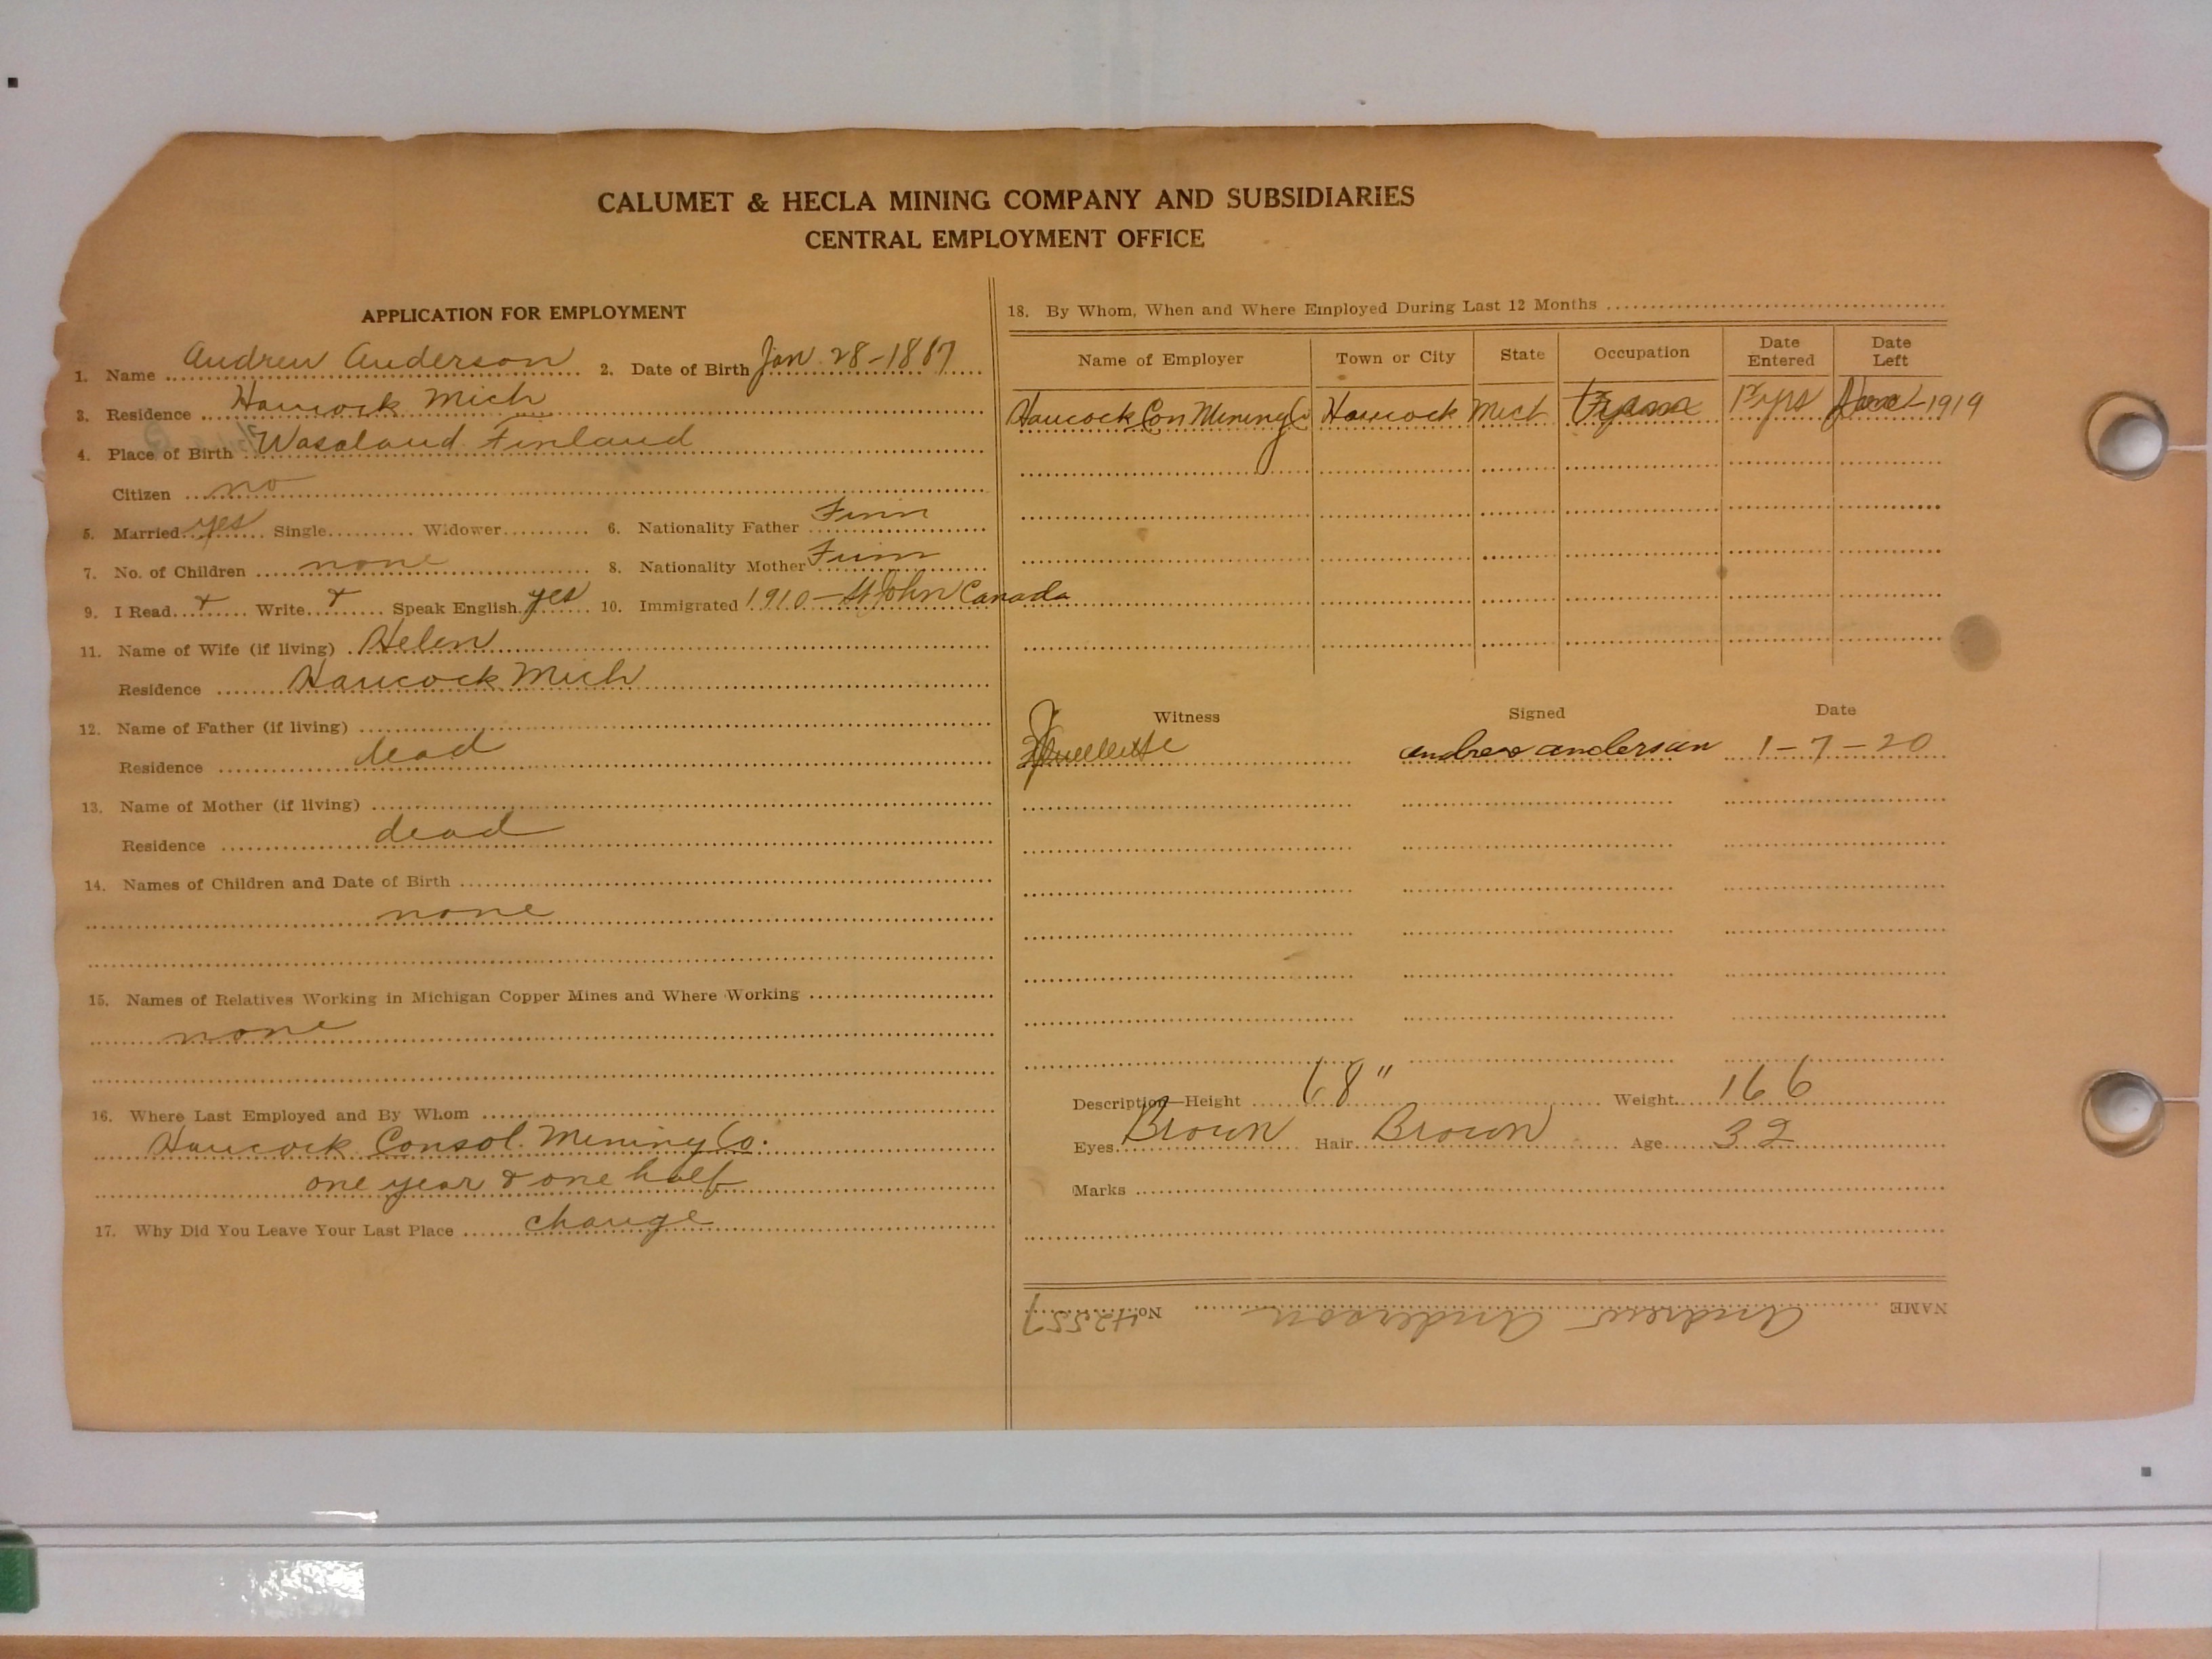 CALUMET & HECLA MINING COMPANY AND SUBSIDIARIES
CENTRAL EMPLOYMENT OFFICE
APPLICATION FOR EMPLOYMENT
1. Name Andrew Anderson 2. Date of Birth Jan 28-1887
3. Residence Hancock Mich
4. Place of Birth Wasaland Finland
Citizen no
5. Married yes Single Widower 6. Nationality Father Finn
7. No. of Children none 8. Nationality Mother Finn
9. I Read + Write + Speak English yes 10. Immigrated 1910 - St John Canada
11. Name of Wife (if living) Helen
Residence Hancock Mich
12. Name of Father (if living)
Residence dead
13. Name of Mother (if living)
Residence dead
14. Names of Children and Date of Birth
none
15. Names of Relatives Working in Michigan Copper Mines and Where Working
none
16. Where Last Employed and By Whom
Hancock Consol. Mining Co.
one year & one half
17. Why Did You Leave Your Last Place change
18. By Whom, When and Where Employed During Last 12 Months
Name of Employer Town or City State Occupation Date Entered Date Left
Hancock Con Mining Co Hancock Mich 1919
Witness Signed Date
andrew anderson 1-7-20
Description—Height 68" Weight 166
Eyes Brown Hair Brown Age 32
Marks
NAME Andrew Anderson No. 42557